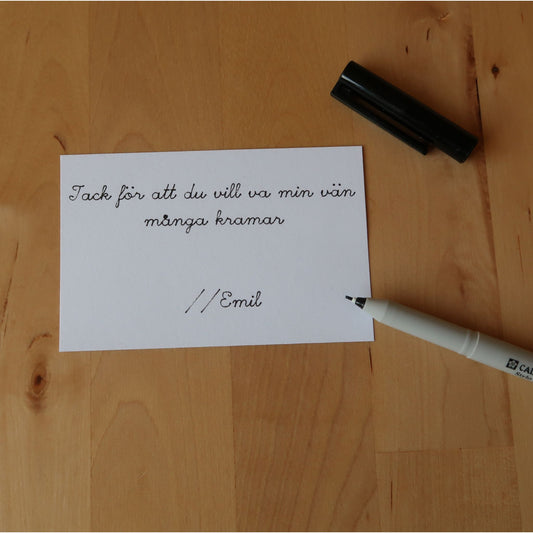 Tack för att du vill va min vän
många kramar
//Emil